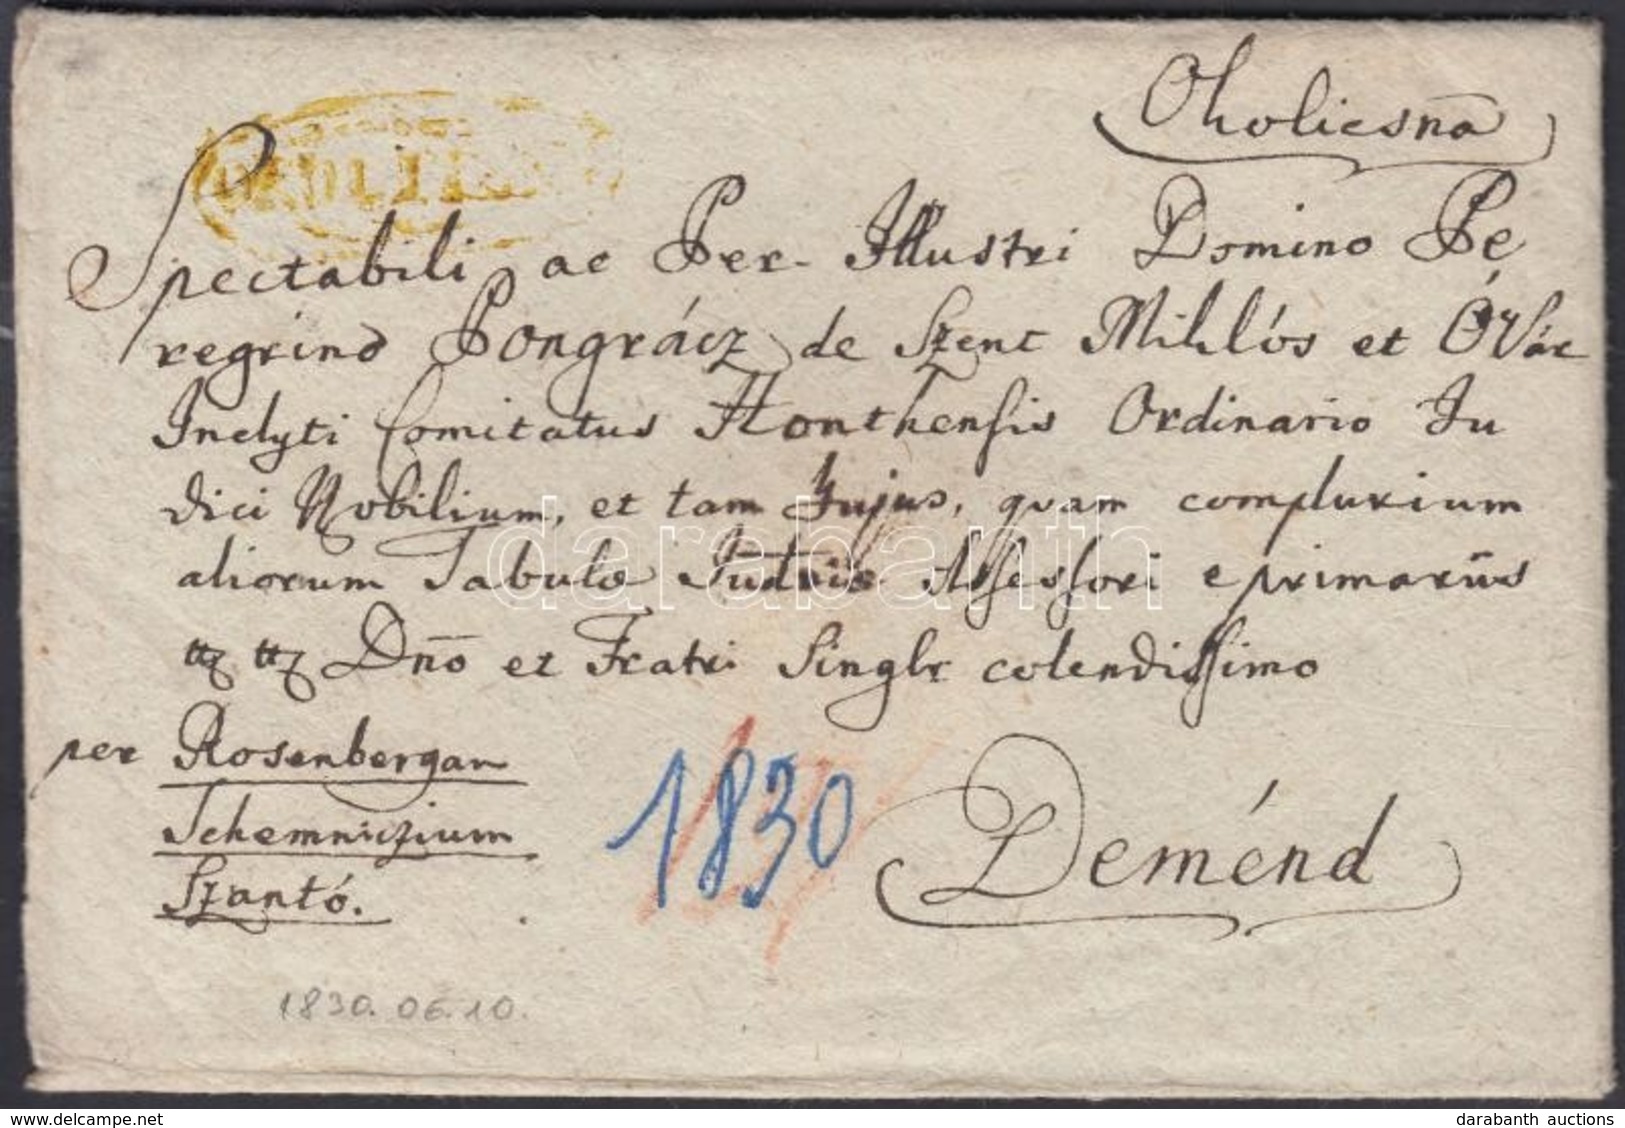 Okolicsnã
Spectabili ac Per Illustri Domino Pe
regrino Pongrácz de Szent Miklós et Óvár
Inclyti Comitatus Honthensis Ordinario Ju
dici Nobilium, et tam hujus, quam complurium
aliorum Tabulæ Judriæ Assessori e primariis
ttz ttz Dño et Fratri Singlr colendissimo
per Rosenbergam
Schemniczium
Szantó.
1830
Deménd
1830. 06. 10.
darabanth
darabanth auctions